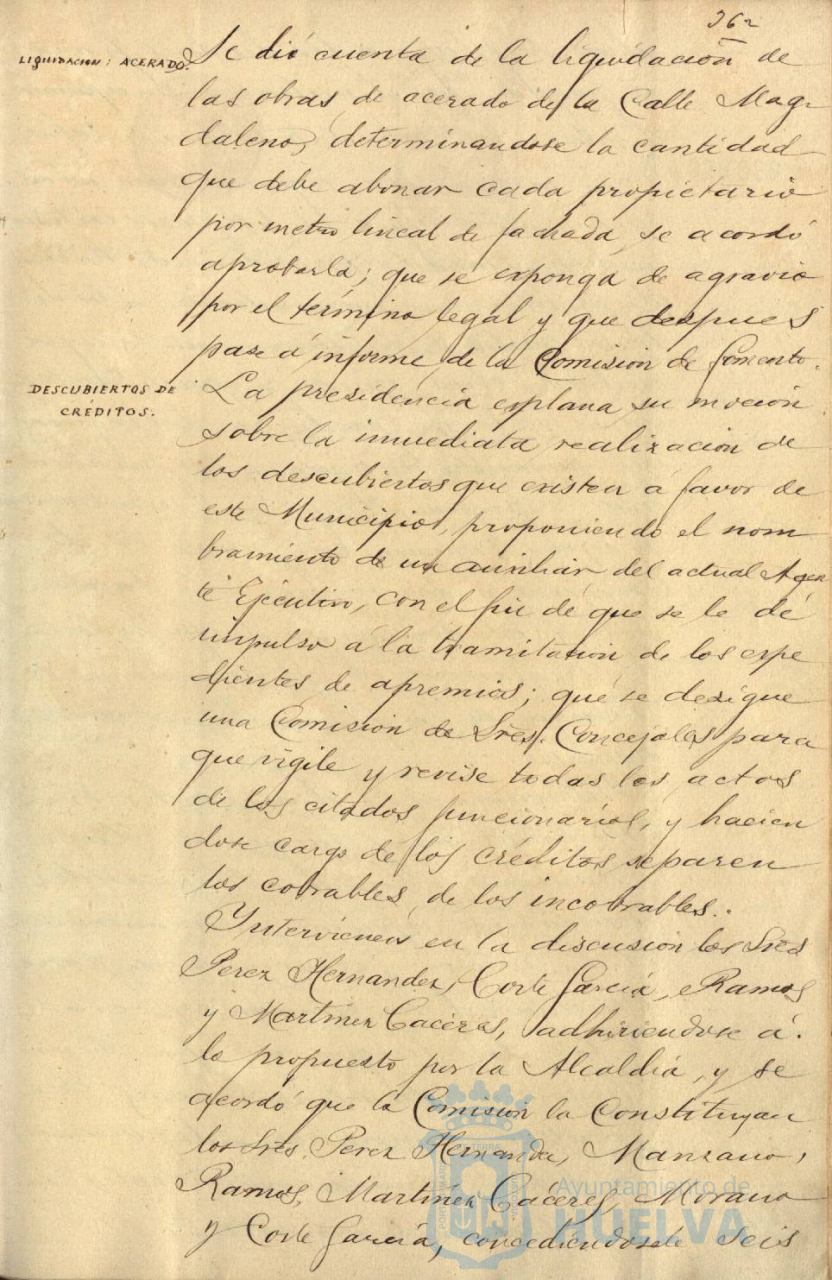 362
LIQUIDACION: ACERADO.
Se dió cuenta de la liquidación de
las obras de acerado de la Calle Mag-
dalena, determinandose la cantidad
que debe abonar cada propietario
por metro lineal de fachada, se acordó
aprobarla; que se esponga de agravio
por el término legal y que despues
pase á informe de la Comisión de Fomento.
DESCUBIERTOS DE
CRÉDITOS.
La presidencia esplana su moción
sobre la inmediata realización de
los descubiertos que existen á favor de
este Municipio, proponiendo el nom
bramiento de un auxiliar del actual Agen
te Ejecutivo, con el fin de que se le dé
impulso á la tramitacion de los espe
dientes de apremios; que se designe
una Comision de Sres. Concejales para
que vigile y revise todos los actos
de los citados funcionarios, y hacien
dose cargo de los créditos separen
los cobrables de los incobrables.
Intervienen en la discusion los Sres
Perez Hernandez, Corte Garcia, Ramos
y Martinez Caceres, adhiriendose á
lo propuesto por la Alcaldia, y se
acordó que la Comisión la Constituyan
los Sres. Perez Hernandez, Manzano,
Ramos, Martinez Cáceres, Morano
y Corte Garcia, concediendosele seis
Ayuntamiento de
HUELVA